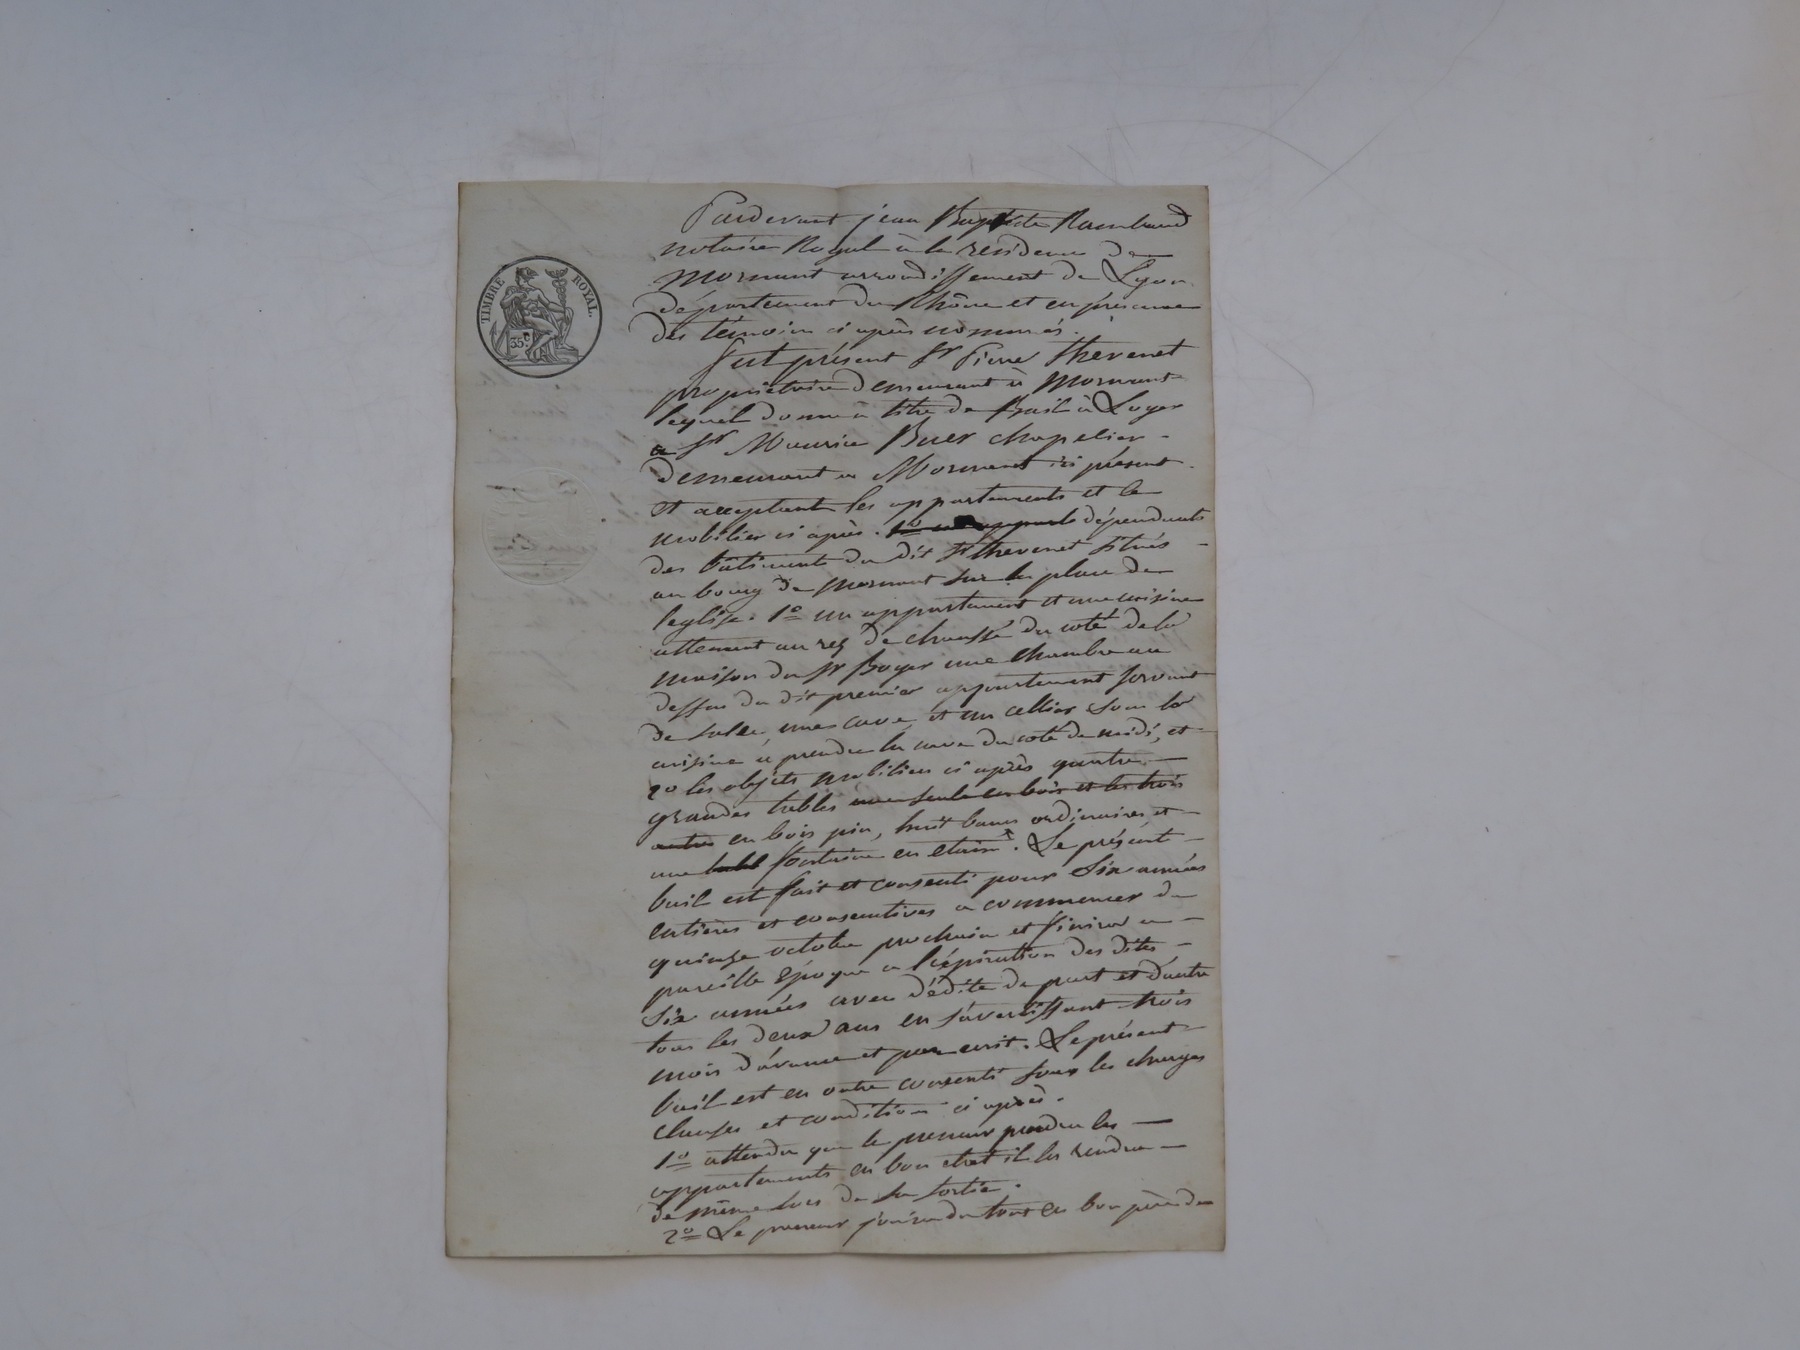 TIMBRE ROYAL.
35c
Pardevant jean Baptiste Rambaud
notaire Royal à la residence de
Mornant arrondissement de Lyon
département du Rhône et en présence
des témoins ci après nommés.
fut présent Sr Pierre thevenet
propriétaire demeurant à Mornant
lequel donne à titre de Bail à Loyer
a Sr Maurice Buer chapelier
demeurant a Mornant ici présent
et acceptant les appartements et le
mobilier ci après. 1o dépendants
des bâtiments du dit Sr thevenet situés
au bourg de mornant sur la place de
leglise. 1o un appartement et une cuisine
attenant au rez de chaussé du coté de la
maison du Sr Boyer une chambre au
dessus du dit premier appartement servant
de salle, une cave, et un cellier sous la
cuisine à prendre la cave du coté de midi, et
2o les objets mobiliers ci après quatre
grandes tables une seule en bois et les trois
autres en bois pin, huit bancs ordinaires, et
une fontaine en etain. Le présent
bail est fait et consenti pour Six années
entières et consecutives a commencer du
quinze octobre prochain et finira a
pareille époque a l'éxpiration des dites
six années avec dédite de part et d'autre
tous les deux ans en s'avertissant trois
mois d'avance et par ecrit. Le présent
bail est en outre consenti sous les charges
clauses et conditions ci après.
1o attendu que le preneur prendra les
appartements en bon etat il les rendra
de même lors de sa sortie.
2o Le preneur jouira du tout en bon père de